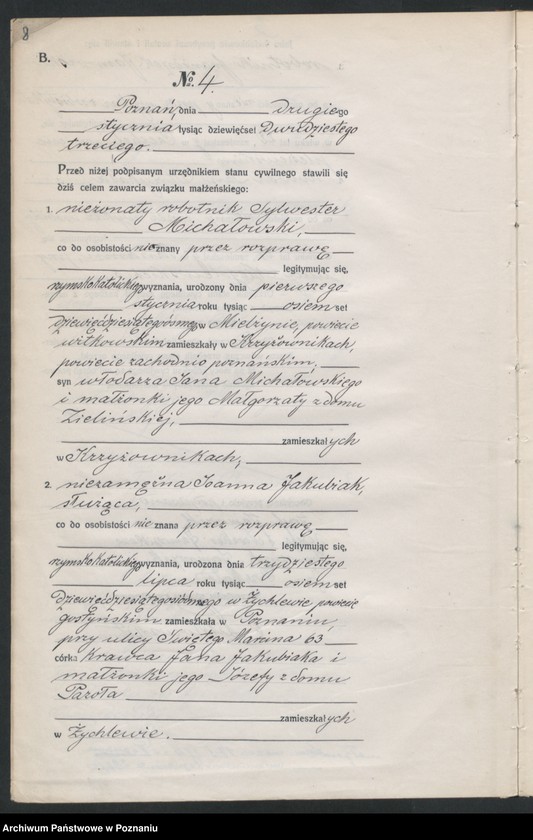 8
B.
№ 4.
Poznań, dnia drugiego
stycznia tysiąc dziewięćset dwudziestego
trzeciego.
Przed niżej podpisanym urzędnikiem stanu cywilnego stawili się
dziś celem zawarcia związku małżeńskiego:
1. nieżonaty robotnik Sylwester
Michałowski,
co do osobistości nieznany przez rozprawę
legitymując się,
rzymsko katolickiego wyznania, urodzony dnia pierwszego
stycznia roku tysiąc osiemset
dziewięćdziesiątego ósmego w Mielżynie, powiecie
witkowskim zamieszkały w Krzyżownikach,
powiecie zachodnio poznańskim,
syn włodarza Jana Michałowskiego
i małżonki jego Małgorzaty z domu
Zielińskiej,
zamieszkałych
w Krzyżownikach,
2. niezamężna Joanna Jakubiak,
służąca,
co do osobistości nie znana przez rozprawę
legitymując się,
rzymsko katolickiego wyznania, urodzona dnia trzydziestego
lipca roku tysiąc osiemset
dziewięćdziesiątego siódmego w Żychlewie, powiecie
gostyńskim zamieszkała w Poznaniu,
przy ulicy Świętego Marcina 63
córka krawca Jana Jakubiaka i
małżonki jego Józefy z domu
Parola
zamieszkałych
w Żychlewie.
Archiwum Państwowe w Poznaniu